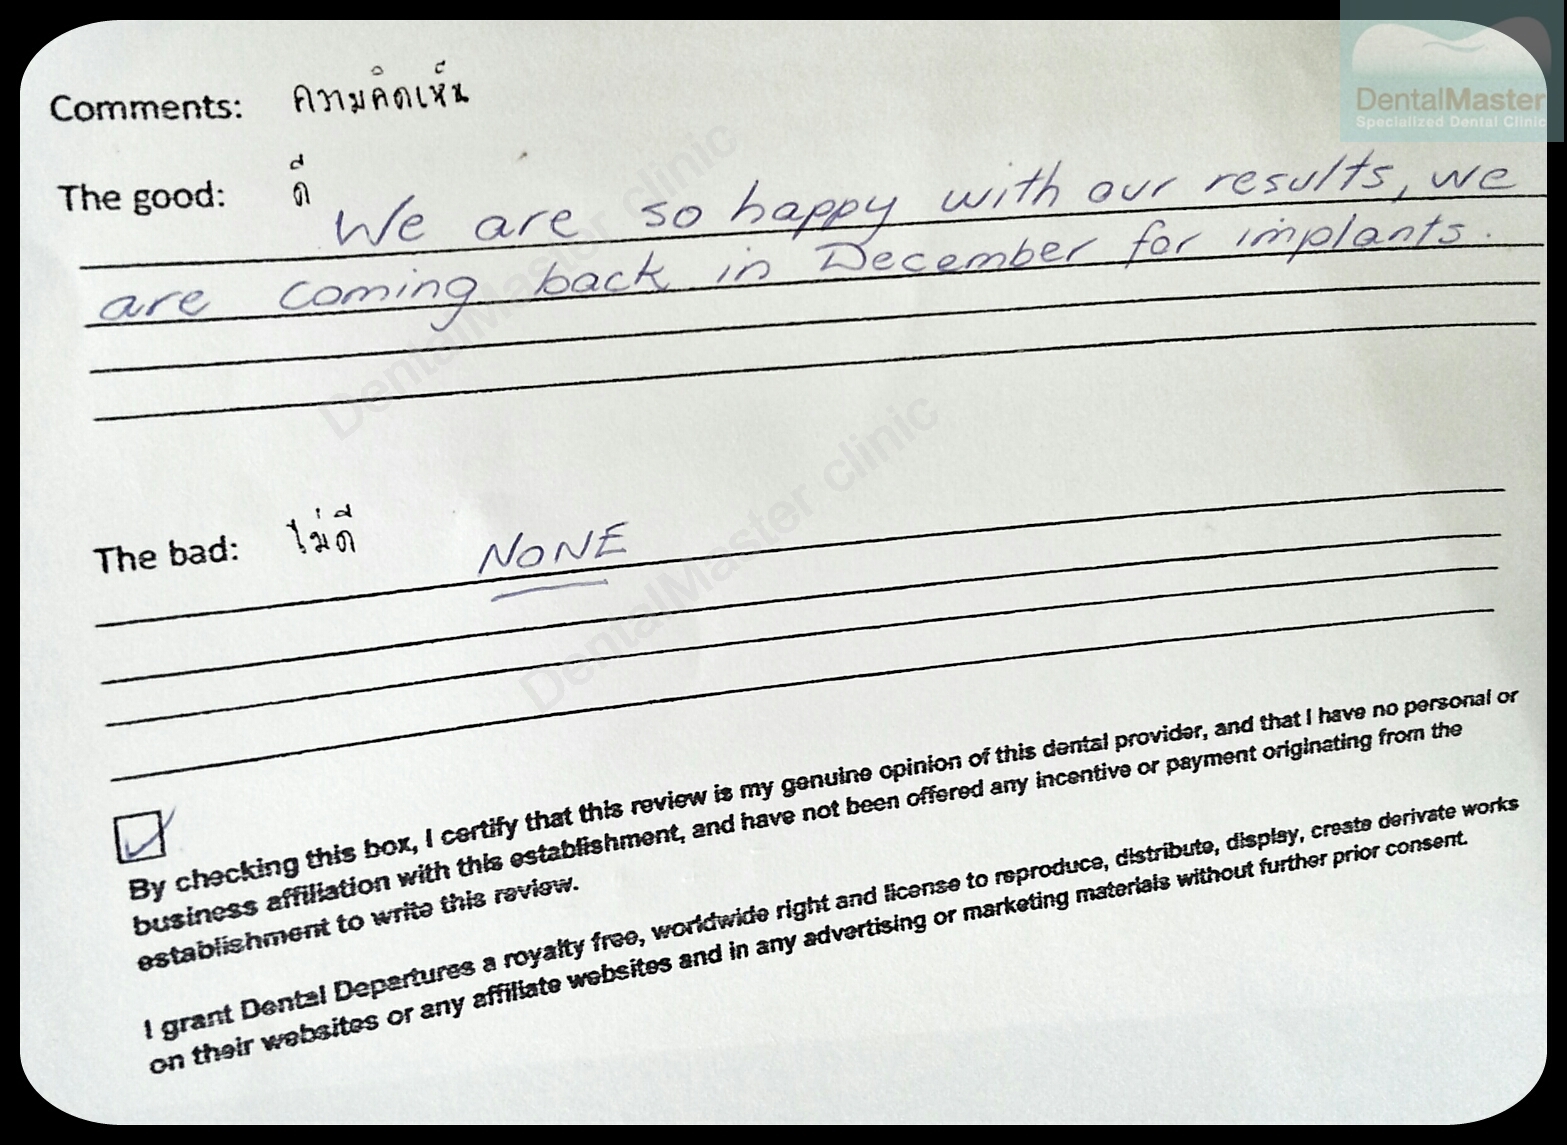 DentalMaster
Specialized Dental Clinic
Comments: ความคิดเห็น
The good: ดี
We are so happy with our results, we
are coming back in December for implants.
The bad: ไม่ดี NONE
By checking this box, I certify that this review is my genuine opinion of this dental provider, and that I have no personal or
business affiliation with this establishment, and have not been offered any incentive or payment originating from the
establishment to write this review.
I grant Dental Departures a royalty free, worldwide right and license to reproduce, distribute, display, create derivate works
on their websites or any affiliate websites and in any advertising or marketing materials without further prior consent.
DentalMaster clinic
DentalMaster clinic